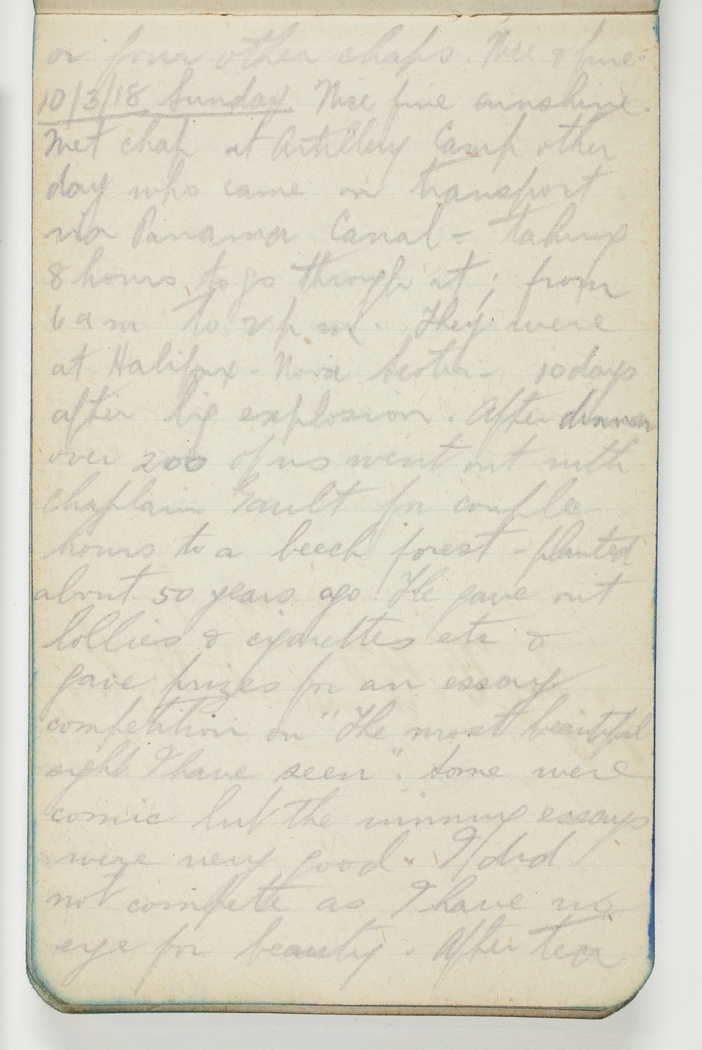 or four other chaps. Nice & fine.
10/3/18 Sunday. Nice fine sunshine.
Met chap at Artillery Camp other
day who came on transport
via Panama Canal - taking
8 hours to go through it; from
6 am to 2 p m. They were
at Halifax - Nova Scotia - 10 days
after big explosion. After dinner
over 200 of us went out with
Chaplain Gault for couple
hours to a beech forest - planted
about 50 years ago. He gave out
lollies & cigarettes etc &
gave prizes for an essay
competition on "The most beautiful
sight I have seen". Some were
comic but the winning essays
were very good. I did
not compete as I have no
eye for beauty. After tea